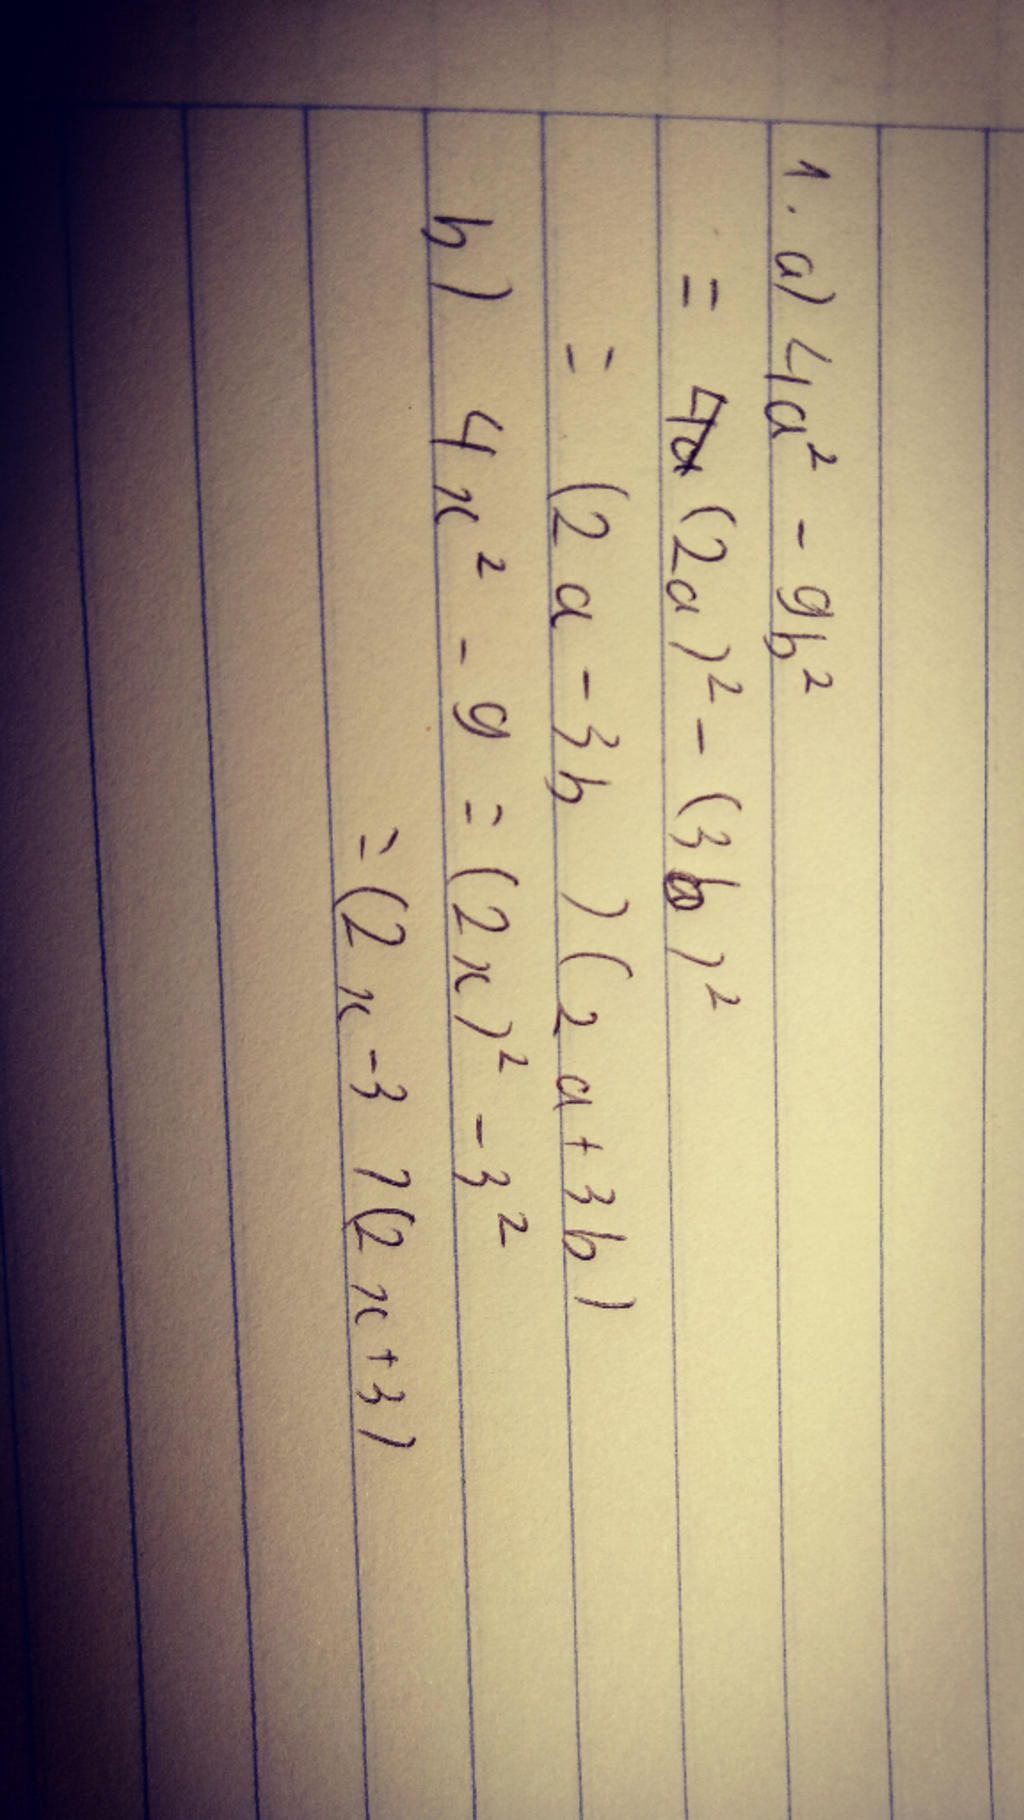 1. a) 4a² - 9b²
= (2a)² - (3b)²
= (2a - 3b)(2a + 3b)
b) 4x² - 9 = (2x)² - 3²
= (2x - 3)(2x + 3)